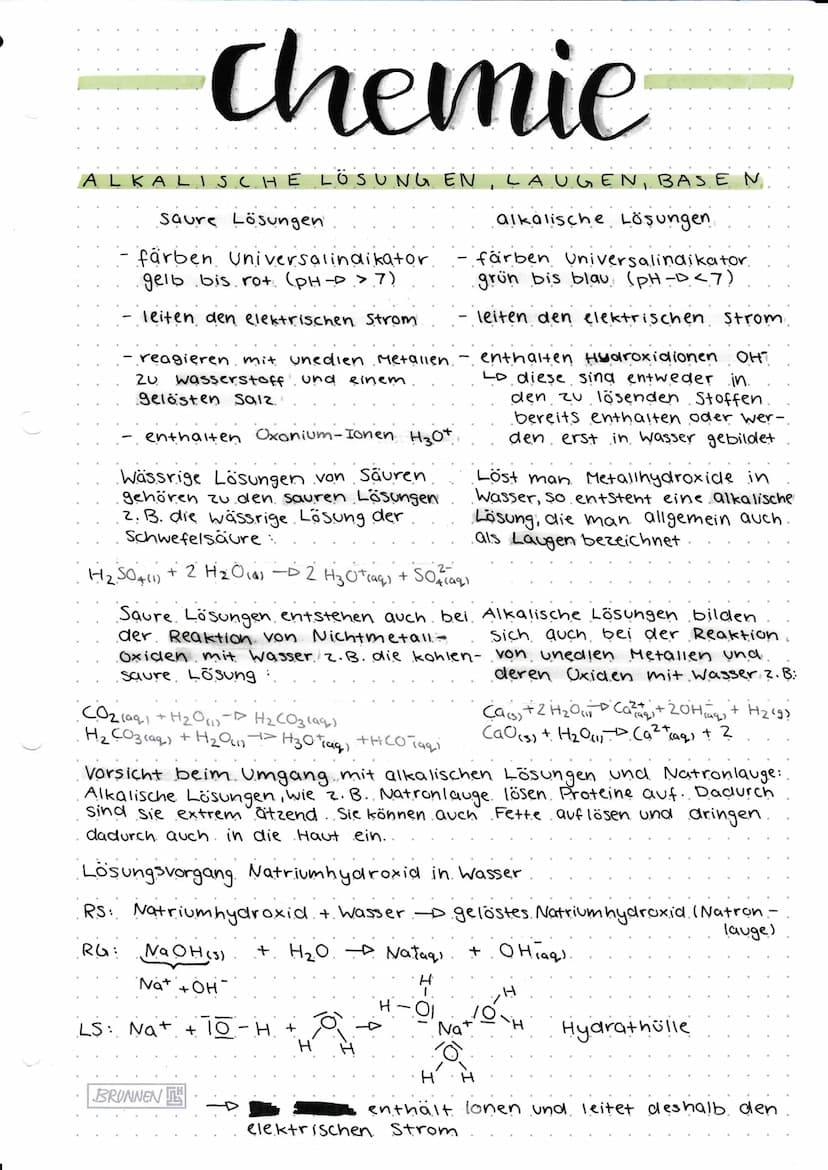 Chemie
ALKALISCHE LÖSUNGEN, LAUGEN, BASEN
saure Lösungen
- färben Universalindikator
gelb bis rot (pH → > 7)
- leiten den elektrischen Strom
- reagieren mit unedlen Metallen
zu Wasserstoff und einem
gelösten Salz
- enthalten Oxonium-Ionen H₃O⁺
alkalische Lösungen
- färben Universalindikator
grün bis blau (pH → < 7)
- leiten den elektrischen Strom
- enthalten Hydroxidionen OH⁻
↳ diese sind entweder in
den zu lösenden Stoffen
bereits enthalten oder wer-
den erst in Wasser gebildet
Wässrige Lösungen von Säuren
gehören zu den sauren Lösungen
z.B. die wässrige Lösung der
Schwefelsäure:
H₂SO₄(l) + 2 H₂O(l) → 2 H₃O⁺(aq) + SO₄²⁻(aq)
Löst man Metallhydroxide in
Wasser, so entsteht eine alkalische
Lösung, die man allgemein auch
als Laugen bezeichnet
Saure Lösungen entstehen auch bei
der Reaktion von Nichtmetall-
Oxiden mit Wasser z.B. die kohlen-
saure Lösung:
CO₂(aq) + H₂O(l) → H₂CO₃(aq)
H₂CO₃(aq) + H₂O(l) → H₃O⁺(aq) + HCO⁻(aq)
Alkalische Lösungen bilden
sich auch bei der Reaktion
von unedlen Metallen und
deren Oxiden mit Wasser z.B:
Ca(s) + 2 H₂O(l) → Ca²⁺(aq) + 2OH⁻(aq) + H₂(g)
CaO(s) + H₂O(l) → Ca²⁺(aq) + 2
Vorsicht beim Umgang mit alkalischen Lösungen und Natronlauge:
Alkalische Lösungen, wie z.B. Natronlauge lösen Proteine auf. Dadurch
sind sie extrem ätzend. Sie können auch Fette auflösen und dringen
dadurch auch in die Haut ein.
Lösungsvorgang Natriumhydroxid in Wasser
RS: Natriumhydroxid + Wasser → gelöstes Natriumhydroxid (Natron-
lauge)
RG: NaOH(s) + H₂O → Na⁺(aq) + OH⁻(aq)
Na⁺ + OH⁻
LS: Na⁺ + |O - H + O H H → H - O| H Na⁺ |O H H O H H Hydrathülle
BRUNNEN
→ enthält Ionen und leitet deshalb den
elektrischen Strom